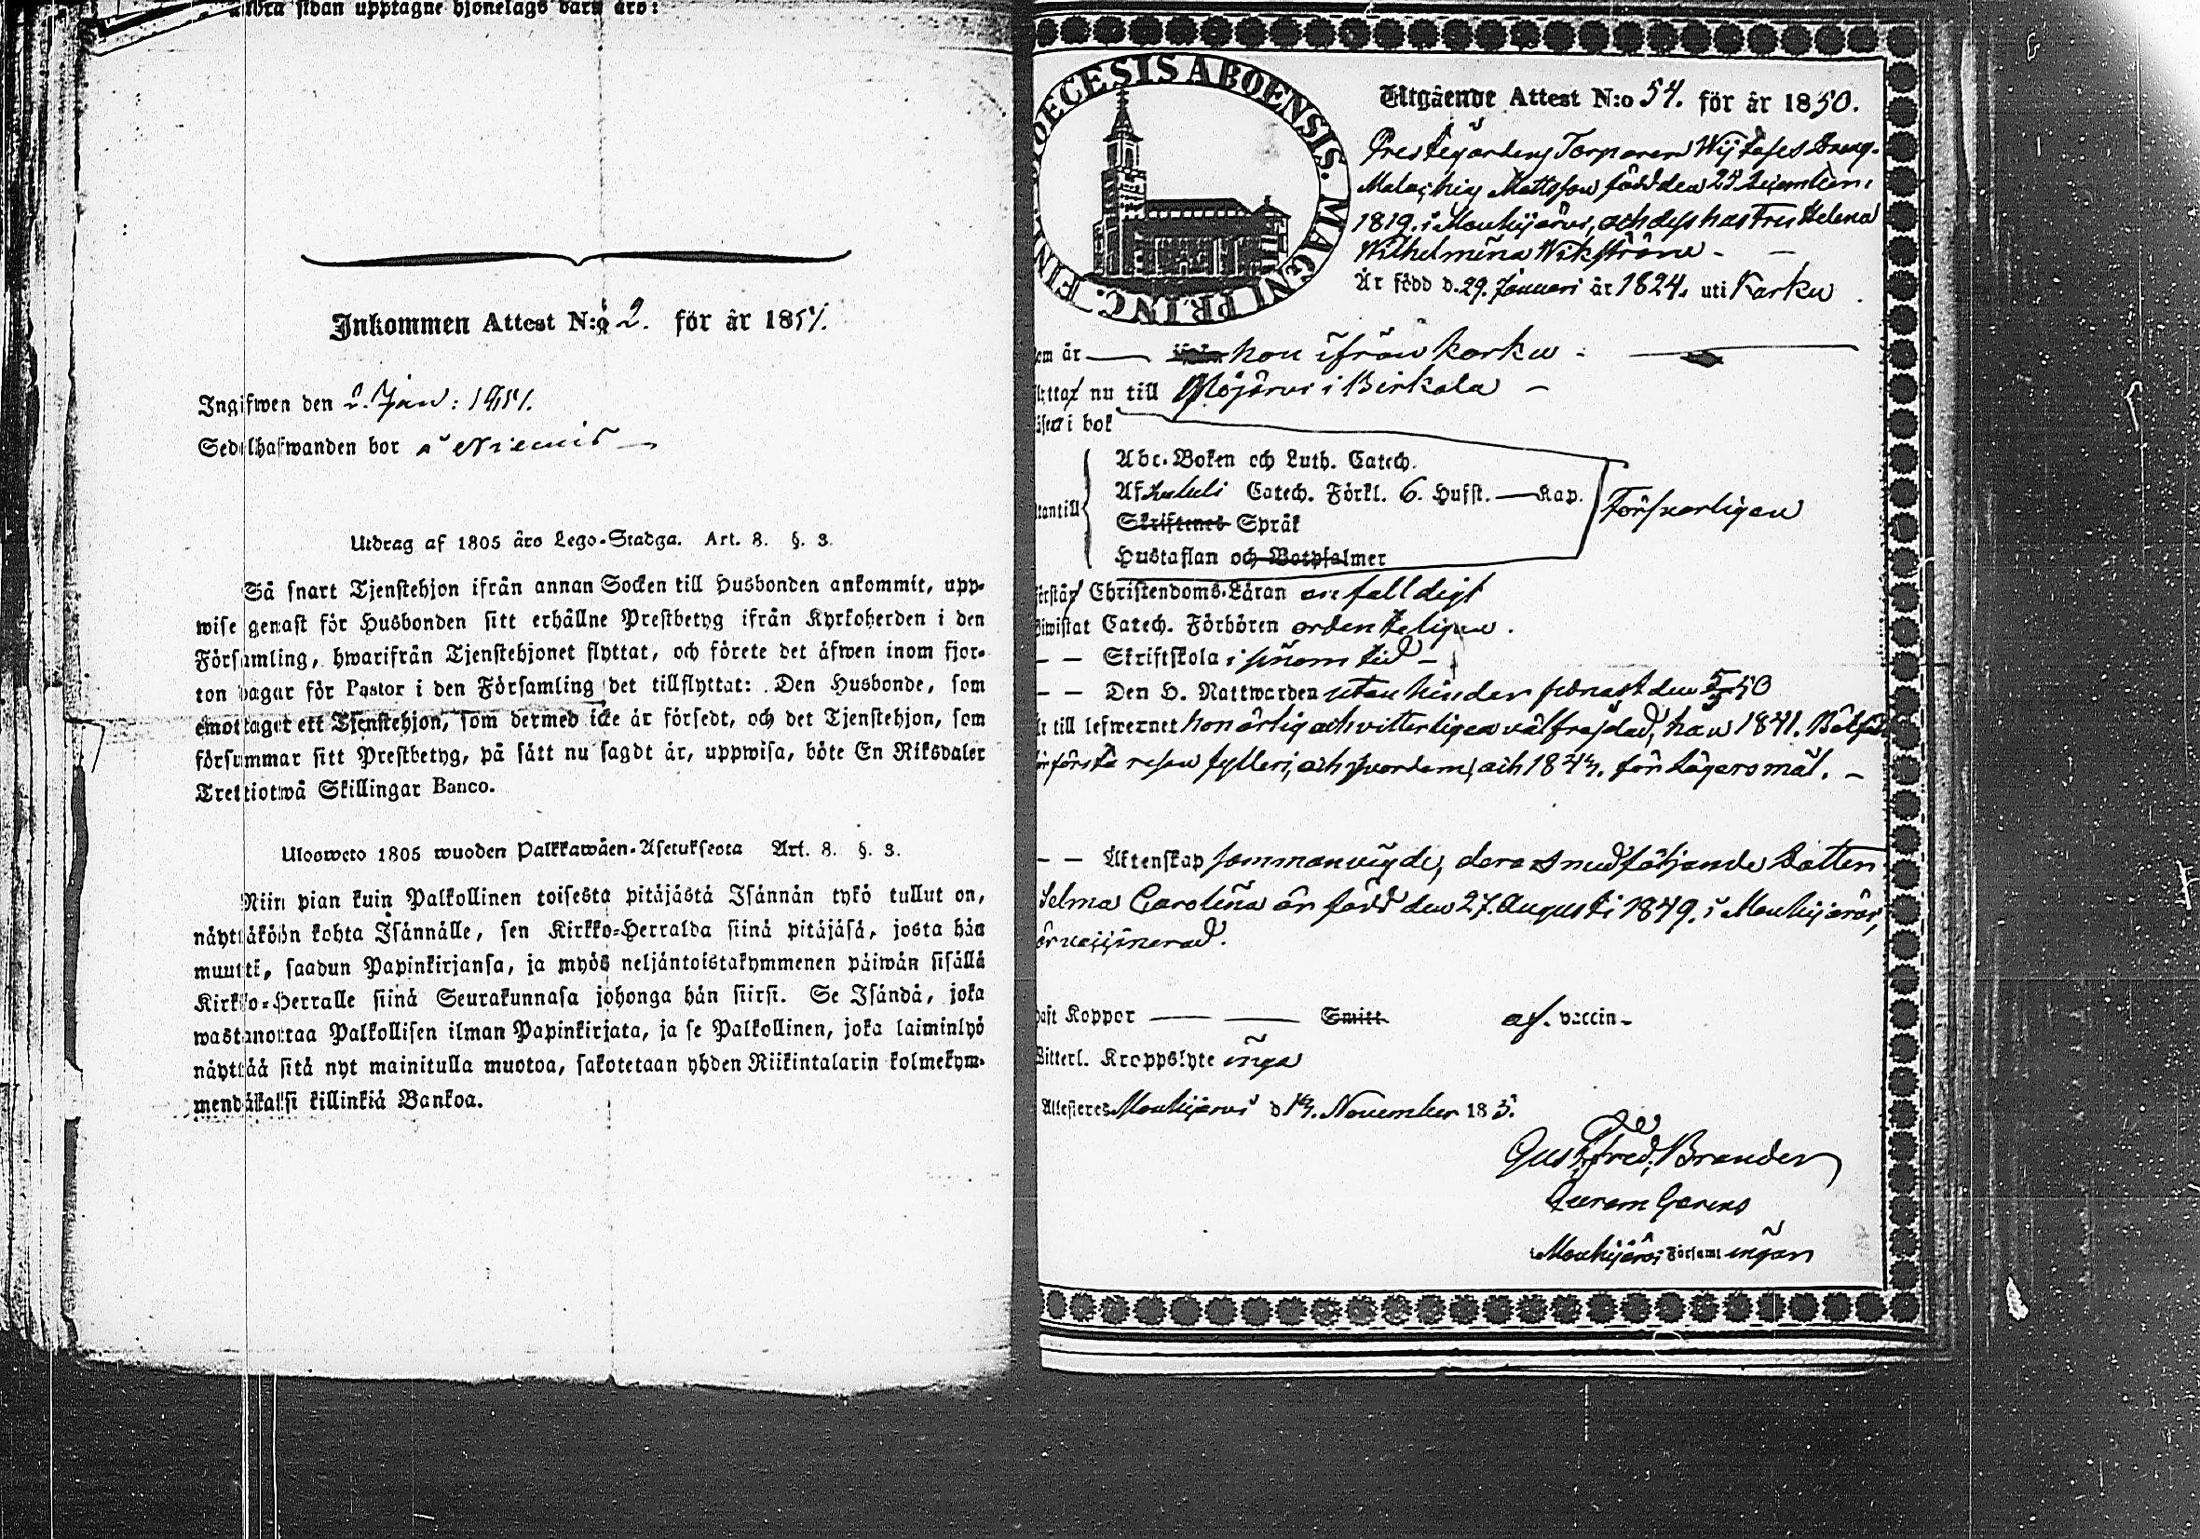 andra sidan upptagne hjonelags barn äro:
Inkommen Attest N:o 2. för år 1851.
Ingifwen den 2. Jan: 1851.
Sedelhafwanden bor å Niemis
Utdrag af 1805 års Lego-Stadga. Art. 8. §. 3.
Så snart Tjenstehjon ifrån annan Socken till Husbonden ankommit, upp-
wise genast för Husbonden sitt erhållne Prestbetyg ifrån Kyrkoherden i den
Församling, hwarifrån Tjenstehjonet flyttat, och förete det äfwen inom fjor-
ton dagar för Pastor i den Församling det tillflyttat: Den Husbonde, som
emottager ett Tjenstehjon, som dermed icke är försedt, och det Tjenstehjon, som
försummar sitt Prestbetyg, på sätt nu sagdt är, uppwisa, böte En Riksdaler
Trettiotwå Skillingar Banco.
Uloosweto 1805 wuoden Palkkawäen-Asetuksesta Art. 8. §. 3.
Niin pian kuin Palkollinen toisesta pitäjästä Isännän tykö tullut on,
näyttäköön kohta Isännälle, sen Kirkko-Herralda siinä pitäjäsä, josta hän
muutti, saadun Papinkirjansa, ja myös neljäntoistakymmenen päiwän sisällä
Kirkko-Herralle siinä Seurakunnasa johonga hän siirsi. Se Isändä, joka
wastanottaa Palkollisen ilman Papinkirjata, ja se Palkollinen, joka laiminlyö
näyttää sitä nyt mainitulla muotoa, sakotetaan yhden Riikintalarin kolmekym-
mendäkaksi killinkiä Bankoa.
DIOECESIS ABOENSIS. MAGNI PRINC. FINL.
Utgående Attest N:o 54. för år 1850.
Prestegårdens Torparen Wijtases Dreng.
Malachias Mattsson född den 24 December
1819. i Mouhijärvi, och dess hustru Helena
Wilhelmina Wikström - -
Är född d. 29. Januari år 1824. uti Karku.
om är hon ifrån Karku
flyttar nu till Ylöjärvi i Birkala -
Läser i bok
Abc-Boken och Luth. Catech.
Af Catech. Förkl. 6. Hufst. Kap.
utantill Försvarligen
Skriftenes Språk
Hustaflan och Botpsalmer
Förstår Christendoms-Läran enfalldigt
Biwistat Catech. Förhören ordenteligen.
- - Skriftskola i sinom tid -
- - Den H. Nattwarden utan hinder senast den 5/5 50
Är till lefwernet hon ärlig och vitterligen välfräjdad, han 1841. Bötfäld
för första resan fylleri, och svordom, och 1844. för Lägersmål. -
- - Äktenskap sammanvigde, deras medföljande Dotter
Selma Carolina är född den 27. Augusti 1849. i Mouhijärvi,
är vaccinerad.
haft Koppor Smitt. af. vaccin-
Witterl. Kroppslyte inga
Attesteres Mouhijärvi d 14. November 185.
Gust. Fred. Brander
Curam Gerens
i Mouhijärvi Församlingar